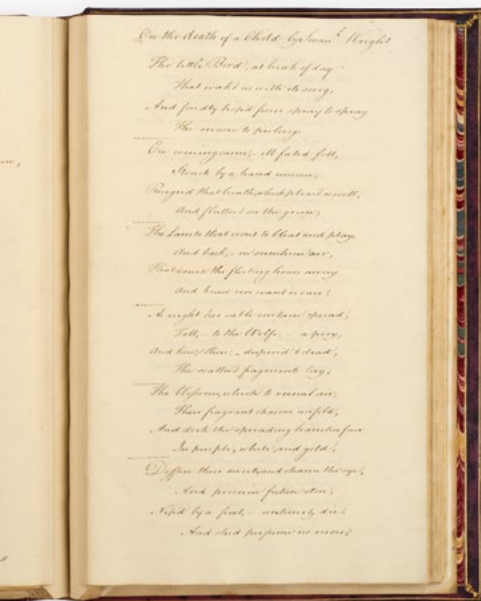 On the death of a Child by Susanh Wright
The little Bird, at break of day
That wak'd us with its song,
And fondly hop'd from spray to spray
The music to prolong.
Ere evening came,- ill fated fell,
Struck by a hand unseen;
Resigned that breath, which pleas'd so well,
And flutter'd on the green;
The Lamb that wont to bleat and play
And bask, - in sunshine air,
That danc'd the fleeting hours away
And knew nor want or care;
As night her sable curtains spread,
Fell, - to the Wolfe, - a prey,
And here, & there, - dispers'd & dead,
The scatter'd fragments lay;
The blossoms, which to vernal air,
Their fragrant charms unfold,
And deck the spreading branches fair
In purple, white, and gold;
Diffuse their sweets, and charm the eye,
And promise future store;
Nip'd by a frost, - untimely die,
And shed perfume no more;